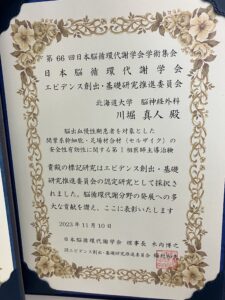 第66回日本脳循環代謝学会学術集会
日本脳循環代謝学会
エビデンス創出・基礎研究推進委員会
北海道大学 脳神経外科
川堀 真人 殿
脳出血慢性期患者を対象とした
間葉系幹細胞・足場材合材（セルザイク）の
安全性有効性に関する第1相医師主導治験
貴殿の標記研究はエビデンス創出・基礎
研究推進委員会の認定研究として採択さ
れました。脳循環代謝分野の発展への多
大な貢献を讃え、ここに表彰いたします
2023年11月10日
日本脳循環代謝学会 理事長 木内博之
同エビデンス創出・基礎研究推進委員会